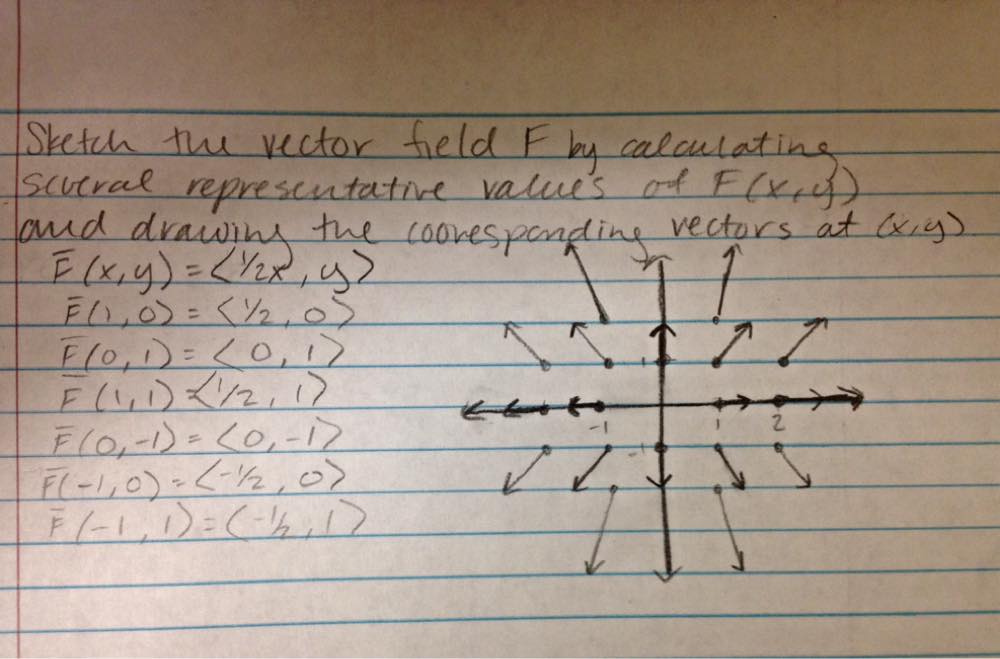 Sketch the vector field F by calculating
several representative values of F(x,y)
and drawing the cooresponding vectors at (x,y)
F̄(x,y) = <1/2x, y>
F̄(1,0) = <1/2, 0>
F̄(0,1) = <0, 1>
F̄(1,1) = <1/2, 1>
F̄(0,-1) = <0, -1>
F̄(-1,0) = <-1/2, 0>
F̄(-1,1) = <-1/2, 1>
1
-1 1 2
-1